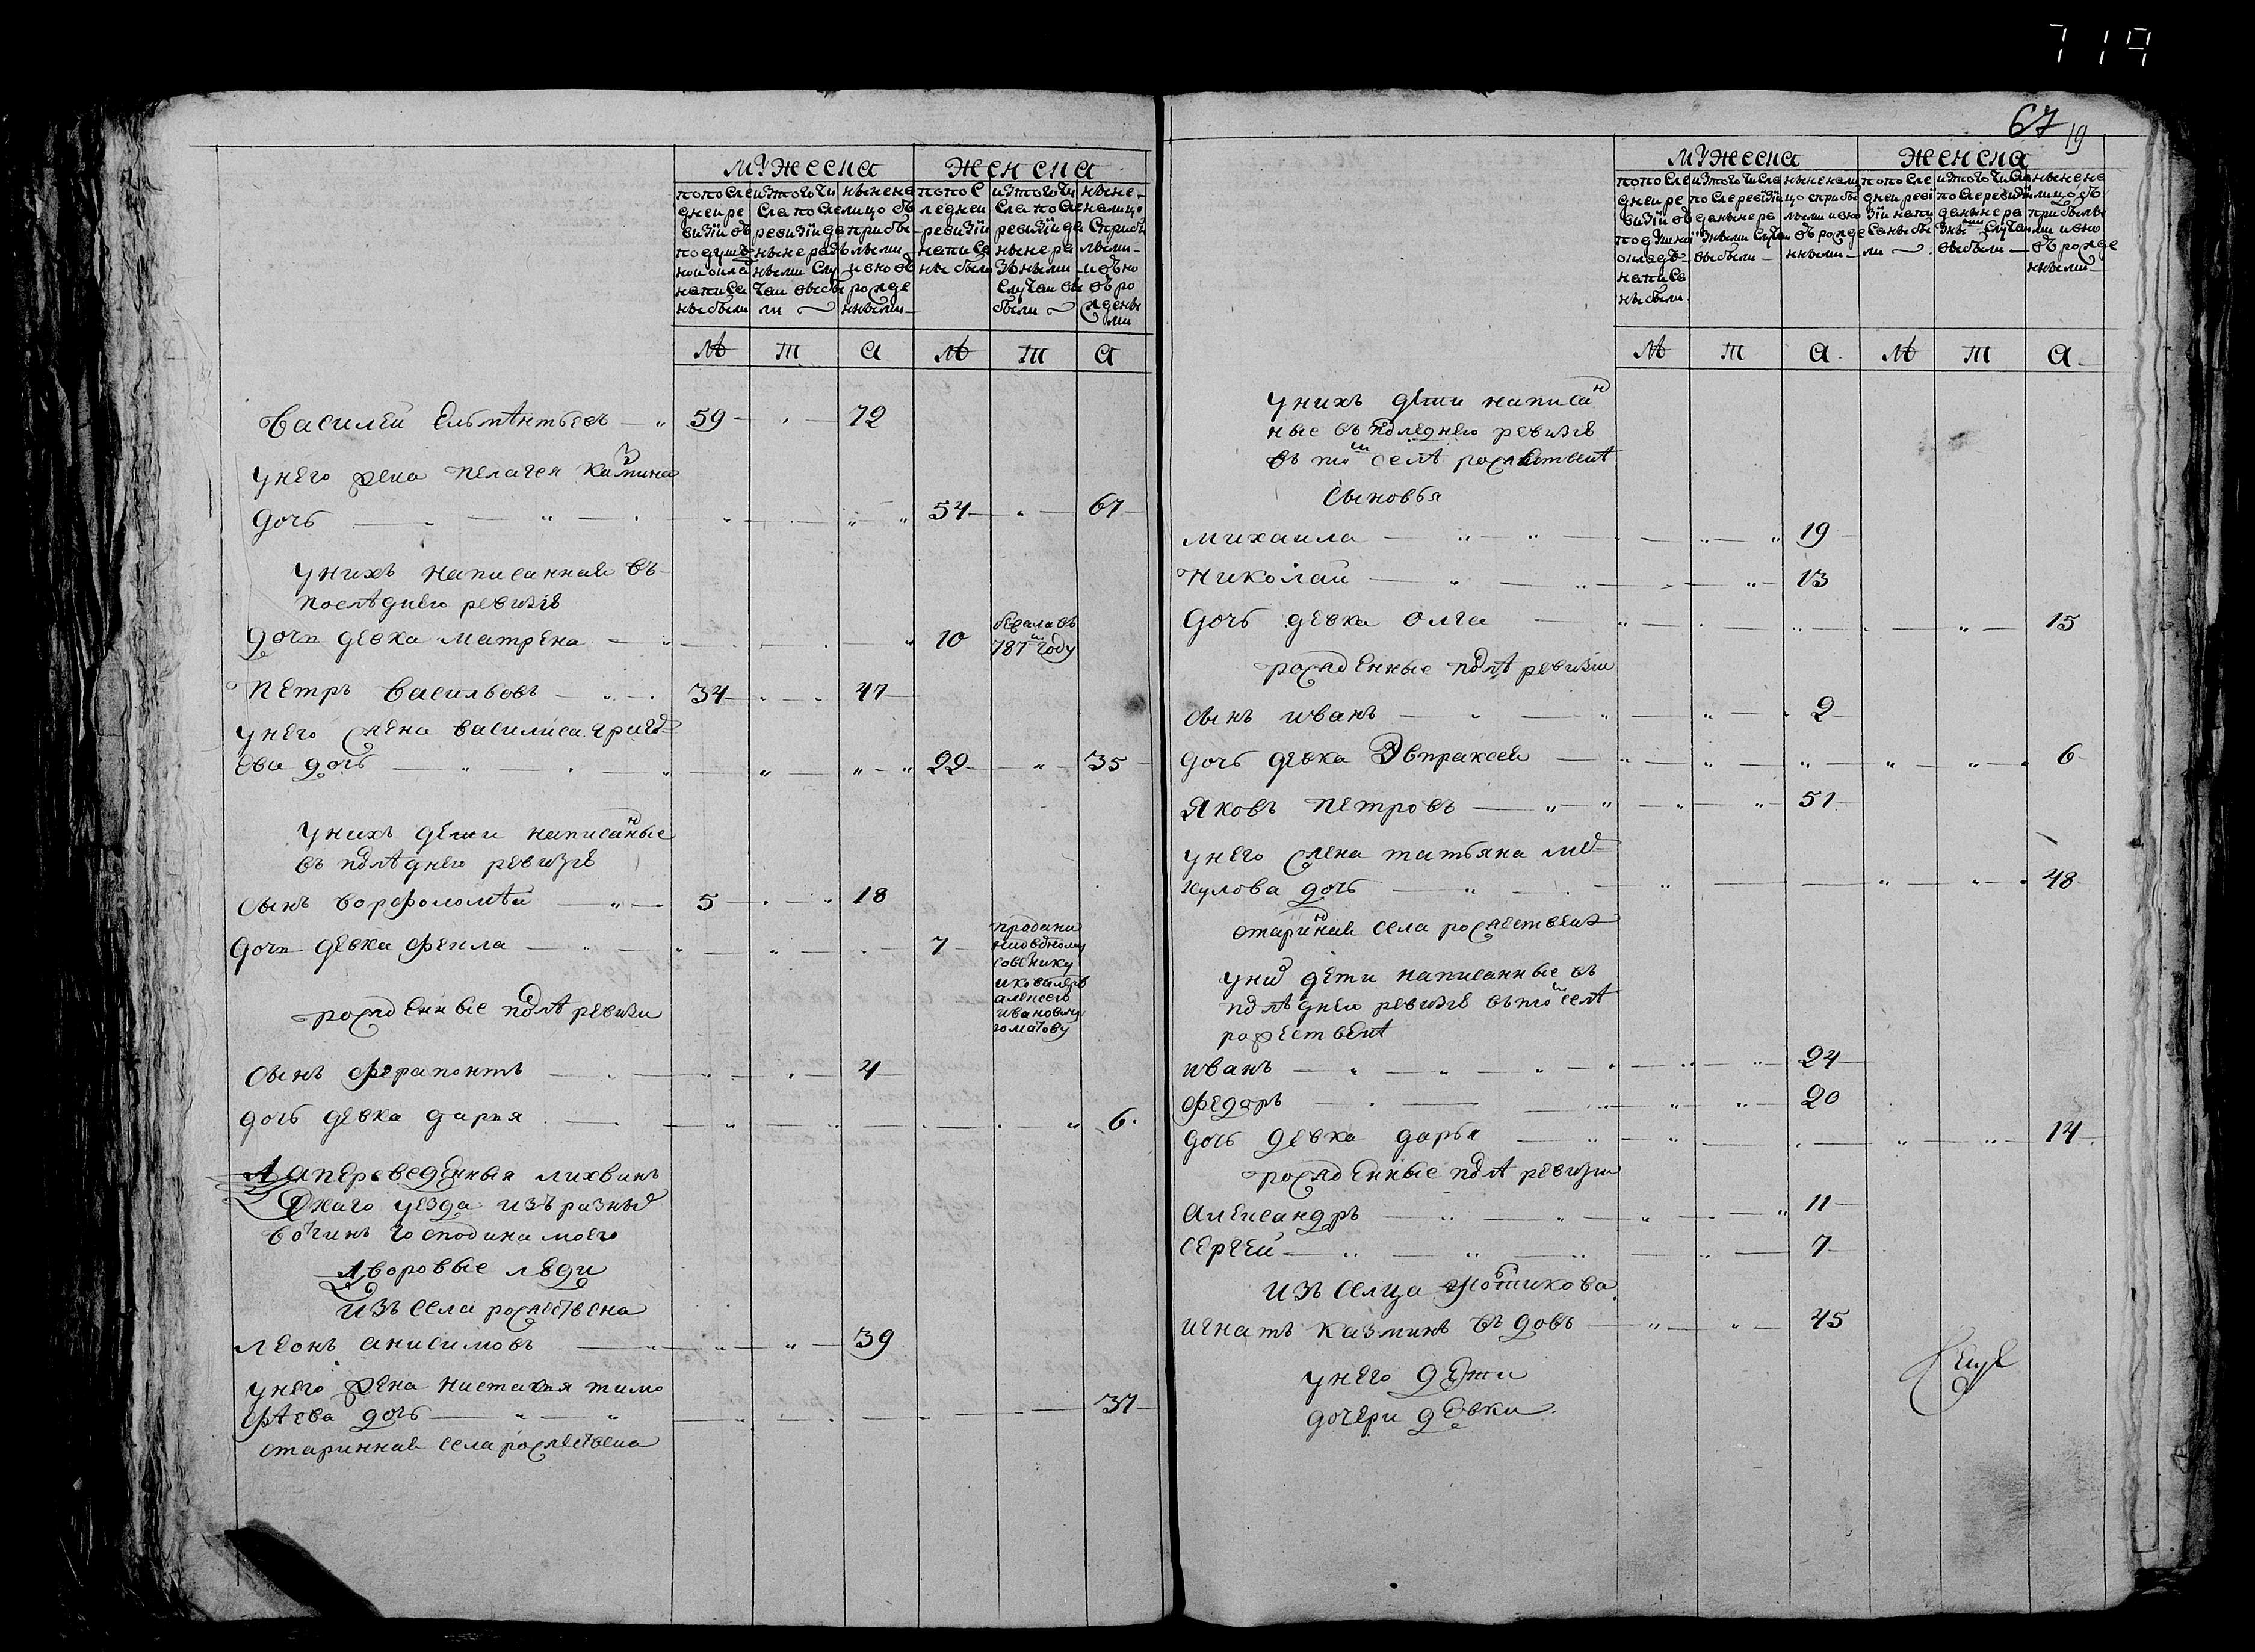 719
67
19
мужеска
женска
попосле
дней ре
визїи въ
подуш
ной окла
написа
ны были
изтого чи
сла после
ревизїи да
ны не раз
ными слу
чаи выбы
ли
ныне на
лицо съ
прибы
лыми
и вновь
рожде
нными
попос
ледней
ревизїи
написа
ны были
изтого чи
сла после
ревизїи да
ны не ра
зными
случаи вы
были
ныне
налицо
с прибы
лыми
и вно
въ ро
жденны
ми
лѣ т а лѣ т а
Василей Елѣмѣнтьевъ 59 72
унего жена пелагея казмина
дочь 54 67
унихъ написанная въ
последнею ревизїю
дочь девка матрена 10
бежала въ
787м году
петръ Васильевъ 34 47
унего жена василиса григор
ева дочь 22 35
унихъ дети написанные
въ последнею ревизїю
сынъ ворфоломѣй 5 18
дочь девка фекла 7
продана
надворному
советнику
икавалеру
алексею
ивановичу
рожденные после ревизи
сынъ ферапонтъ 4
дочь девка дарья 6
А переведенныя лихвинъ
скаго уезда изъ разныхъ
вотчинъ господина моего
Дворовые люди
изъ села рожествена
леонъ анисимовъ 39
унего жена настасья тимо
фѣева дочь 37
старинная села рожествена
мужеска
женска
попосле
дней ре
визїи въ
подушно
окладъ
написа
ны были
изтого числа
после ревизїи
даны не ра
зными случаи
выбыли
ныне нали
цо с прибы
лыми и вно
въ рожде
нными
попосле
дней реви
зїи напи
саны бы
ли
изтого числа
после ревизїи
даны не ра
зными случаи
выбыли
ныне на
лицо съ
прибылы
ми и вно
въ рожде
нными
лѣ т а лѣ т а
унихъ дети написан
ные въ последнею ревизїю
въ томъ селѣ рожественѣ
сыновья
михаила 19
Николай 13
дочь девка олга 15
рожденные после ревизїи
сынъ иванъ 2
дочь девка Эвпраксея 6
яковъ петровъ 51
унего жена татьяна ми
кулова дочь 48
старинная села рожествена
унихъ дети написанные въ
последнею ревизїю въ томъ селѣ
рожественѣ
иванъ 24
федоръ 20
дочь девка дарья 14
рожденные после ревизїи
александръ 11
сергей 7
изъ селца
игнатъ казминъ вдовъ 45
унего дети
дочери девки